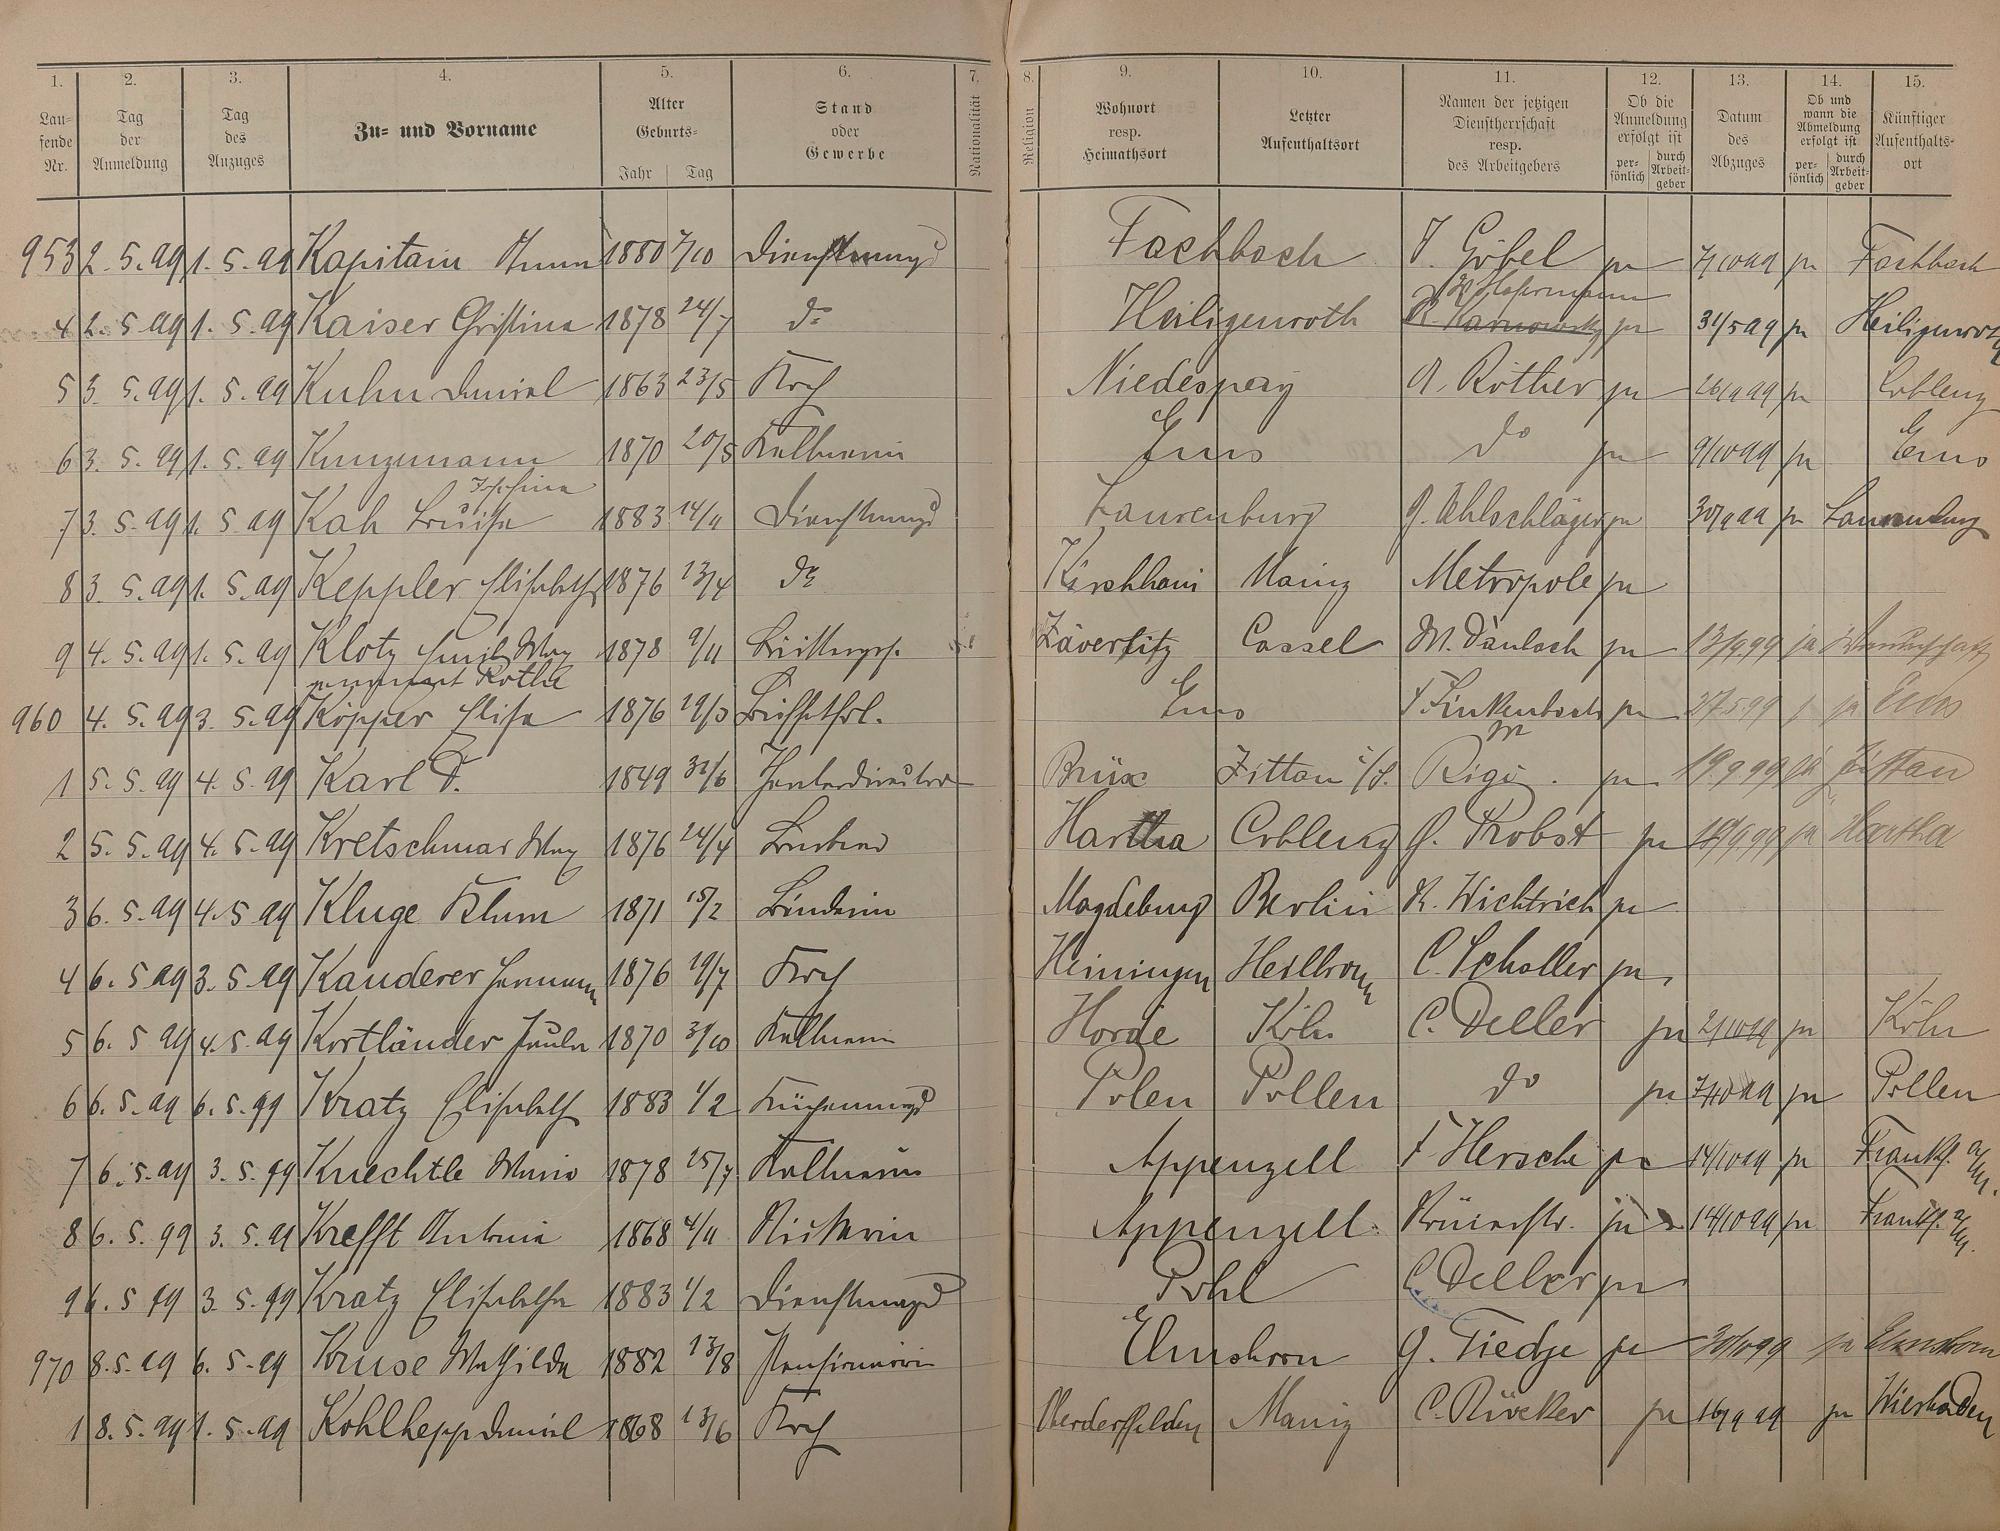 1. 2. 3. 4. 5. 6. 7. 8. 9. 10. 11. 12. 13. 14. 15.
Lau-
fende
Nr.
Tag
der
Anmeldung
Tag
des
Anzuges
Zu- und Vorname
Alter
Geburts-
Jahr Tag
Stand
oder
Gewerbe
Nationalität
Religion
Wohnort
resp.
Heimathsort
Letzter
Aufenthaltsort
Namen der jetzigen
Dienstherrschaft
resp.
des Arbeitgebers
Ob die
Anmeldung
erfolgt ist
per-
sönlich
durch
Arbeit-
geber
Datum
des
Abzuges
Ob und
wann die
Abmeldung
erfolgt ist
per-
sönlich
durch
Arbeit-
geber
Künftiger
Aufenthalts-
ort
953 2. 5. 99 1. 5. 99 Kapitain Anna 1880 7/10 Dienstmagd Fachbach J. Göbel ja 7/10 99 ja Fachbach
4 2. 5 99 1. 5. 99 Kaiser Christina 1878 24/7 do Heiligenroth ja 31/5 99 ja Heiligenroth
5 3. 5. 99 1. 5. 99 Kuhn Daniel 1863 23/5 Koch Niederspay A. Röther ja 26/9 99 ja Coblenz
6 3. 5. 99 1. 5. 99 Kunzmann 1870 20/5 Kellnerin Ems do ja 9/10 99 ja Ems
Josefina
7 3. 5. 99 1. 5 99 Kah Louise 1883 14/11 Dienstmagd Laurenburg G. Uhlschläger ja 30/9 99 ja Laurenburg
8 3. 5. 99 1. 5. 99 Keppler Elisabeth 1876 13/4 do Kirchhain Mainz Metropole ja
9 4. 5. 99 1. 5. 99 Klotz Emil Max 1878 9/11 Cassel M. Daubach ja 13/9 99 ja
genannt Rothe
960 4. 5. 99 3. 5. 99 Köpper Elise 1876 19/3 Buffetfrl. Ems F Finkenbach ja 27 5 99 ja Ems
1 5. 5. 99 4. 5. 99 Karl F. 1849 30/6 Theaterdirector Brüx Zittau i/S. Rigi. ja 19. 9 99 ja Zittau
2 5. 5. 99 4. 5. 99 Kretschmar Max 1876 24/4 Hartha Coblenz G. Probst ja 19/9 99 ja Hartha
3 6. 5. 99 4. 5 99 Kluge Klara 1871 15/2 Binderin Magdeburg Berlin R. Wichtrich ja
4 6. 5 99 3. 5. 99 Kauderer Hermann 1876 19/7 Koch Heiningen Heilbronn C. Scholler ja
5 6. 5 99 4. 5. 99 Kortländer Paula 1870 31/10 Kellnerin Horde Köln C. Deller ja 2/10 99 ja Köln
6 6. 5. 99 6. 5. 99 Kratz Elisabeth 1883 1/2 Küchenmagd Polen Pollen do ja 7/10 99 ja Pollen
7 6. 5. 99 3. 5. 99 Knechtle Maria 1878 25/7 Kellnerin Appenzell F Hersche ja 14/10 99 ja Frankf. a/M.
8 6. 5. 99 3. 5. 99 Krefft Antonia 1868 4/11 Appenzell. ja 14/10 99 ja Frankf. a/M.
9 6. 5 99 3. 5. 99 Kratz Elisabetha 1883 1/2 Dienstmagd Pohl C. Deller ja
970 8. 5. 99 6. 5. 99 Kruse Mathilde 1882 13/8 Pensionärin Elmshorn G. Tiedje ja 30/10 99 ja Elmshorn
1 8. 5. 99 1. 5. 99 Kohlhepp Daniel 1868 13/6 Koch Oberdorffelden Mainz C. Rücker ja 16/9 99 ja Wiesbaden